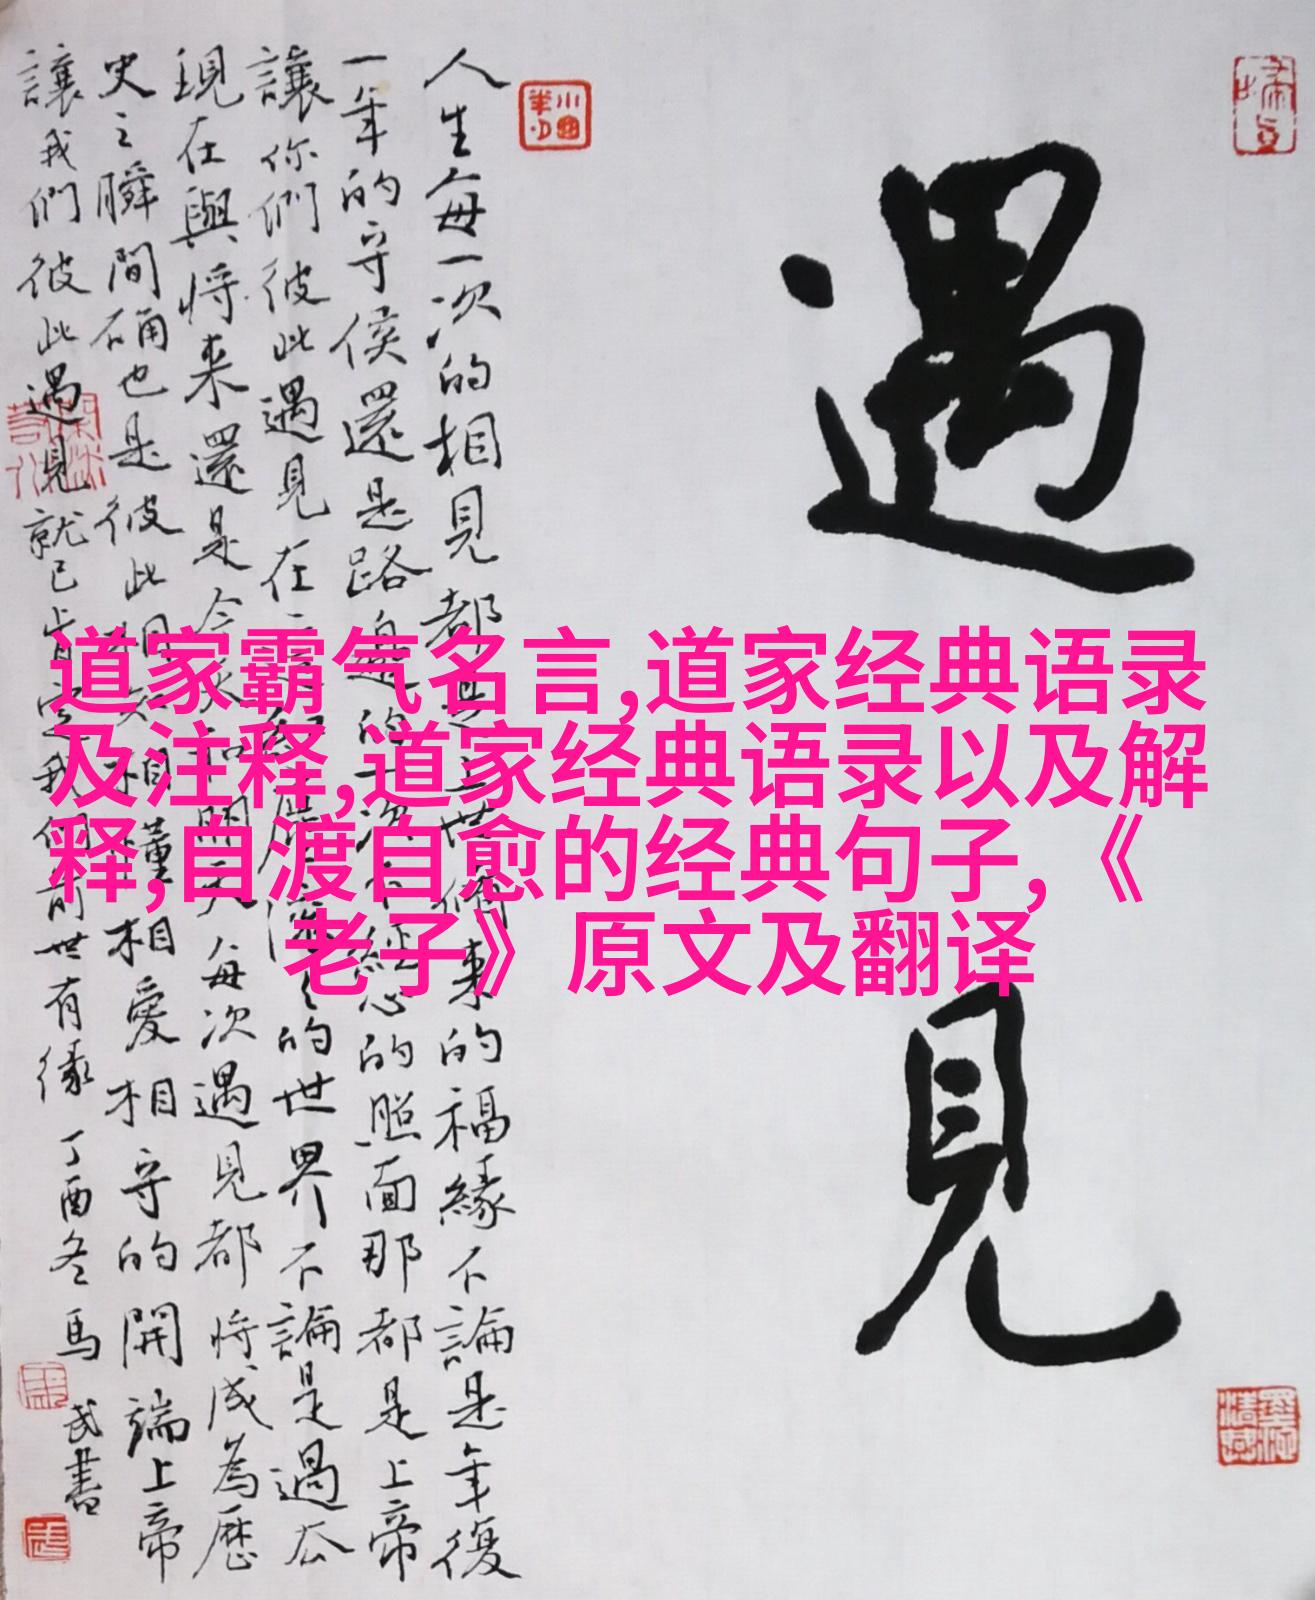 遇見
人生每一次的相見都是上世修来的福緣不論是年復
一年的守侯還是路邊的一次不經心的照面那都是上帝
讓你們彼此遇見在的世界不論是過去
現在與将来還是今天和明天每次遇見都将成為歷
史之瞬間确也是彼此相知相懂相愛相守的開端上帝
讓我們彼此遇見就已肯定我們前世有缘 丁酉冬馬武書
道家霸气名言,道家经典语录
及注释,道家经典语录以及解
释,自渡自愈的经典句子,《
老子》原文及翻译